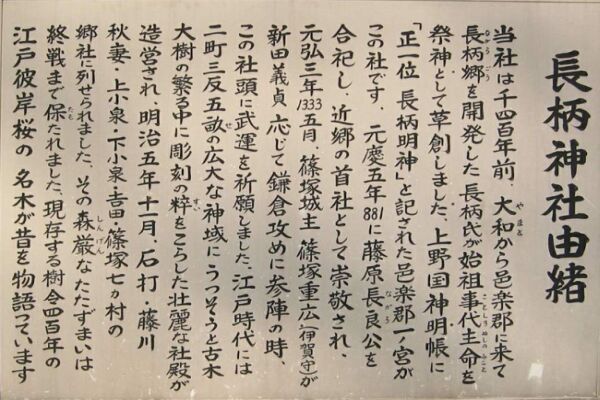 長柄神社由緒
当社は千四百年前、大和から邑楽郡に来て
長柄郷を開発した長柄氏が始祖事代主命を
祭神として草創しました、上野国神明帳に
「正一位 長柄明神」と記された邑楽郡一ノ宮が
この社です、元慶五年881に藤原長良公を
合祀し、近郷の首社として崇敬され、
元弘三年1333五月、篠塚城主 篠塚重広(伊賀守)が
新田義貞 応じて鎌倉攻めに参陣の時、
この社頭に武運を祈願しました、江戸時代には
二町三反五畝の広大な神域にうつそうと古木
大樹の繁る中に彫刻の粋をこらした壮麗な社殿が
造営され、明治五年十一月、石打・藤川
秋妻・上小泉・下小泉・吉田・篠塚七ヵ村の
郷社に列せられました、その森厳なたたずまいは
終戦まで保たれました、現存する樹令四百年の
江戸彼岸桜の 名木が昔を物語っています